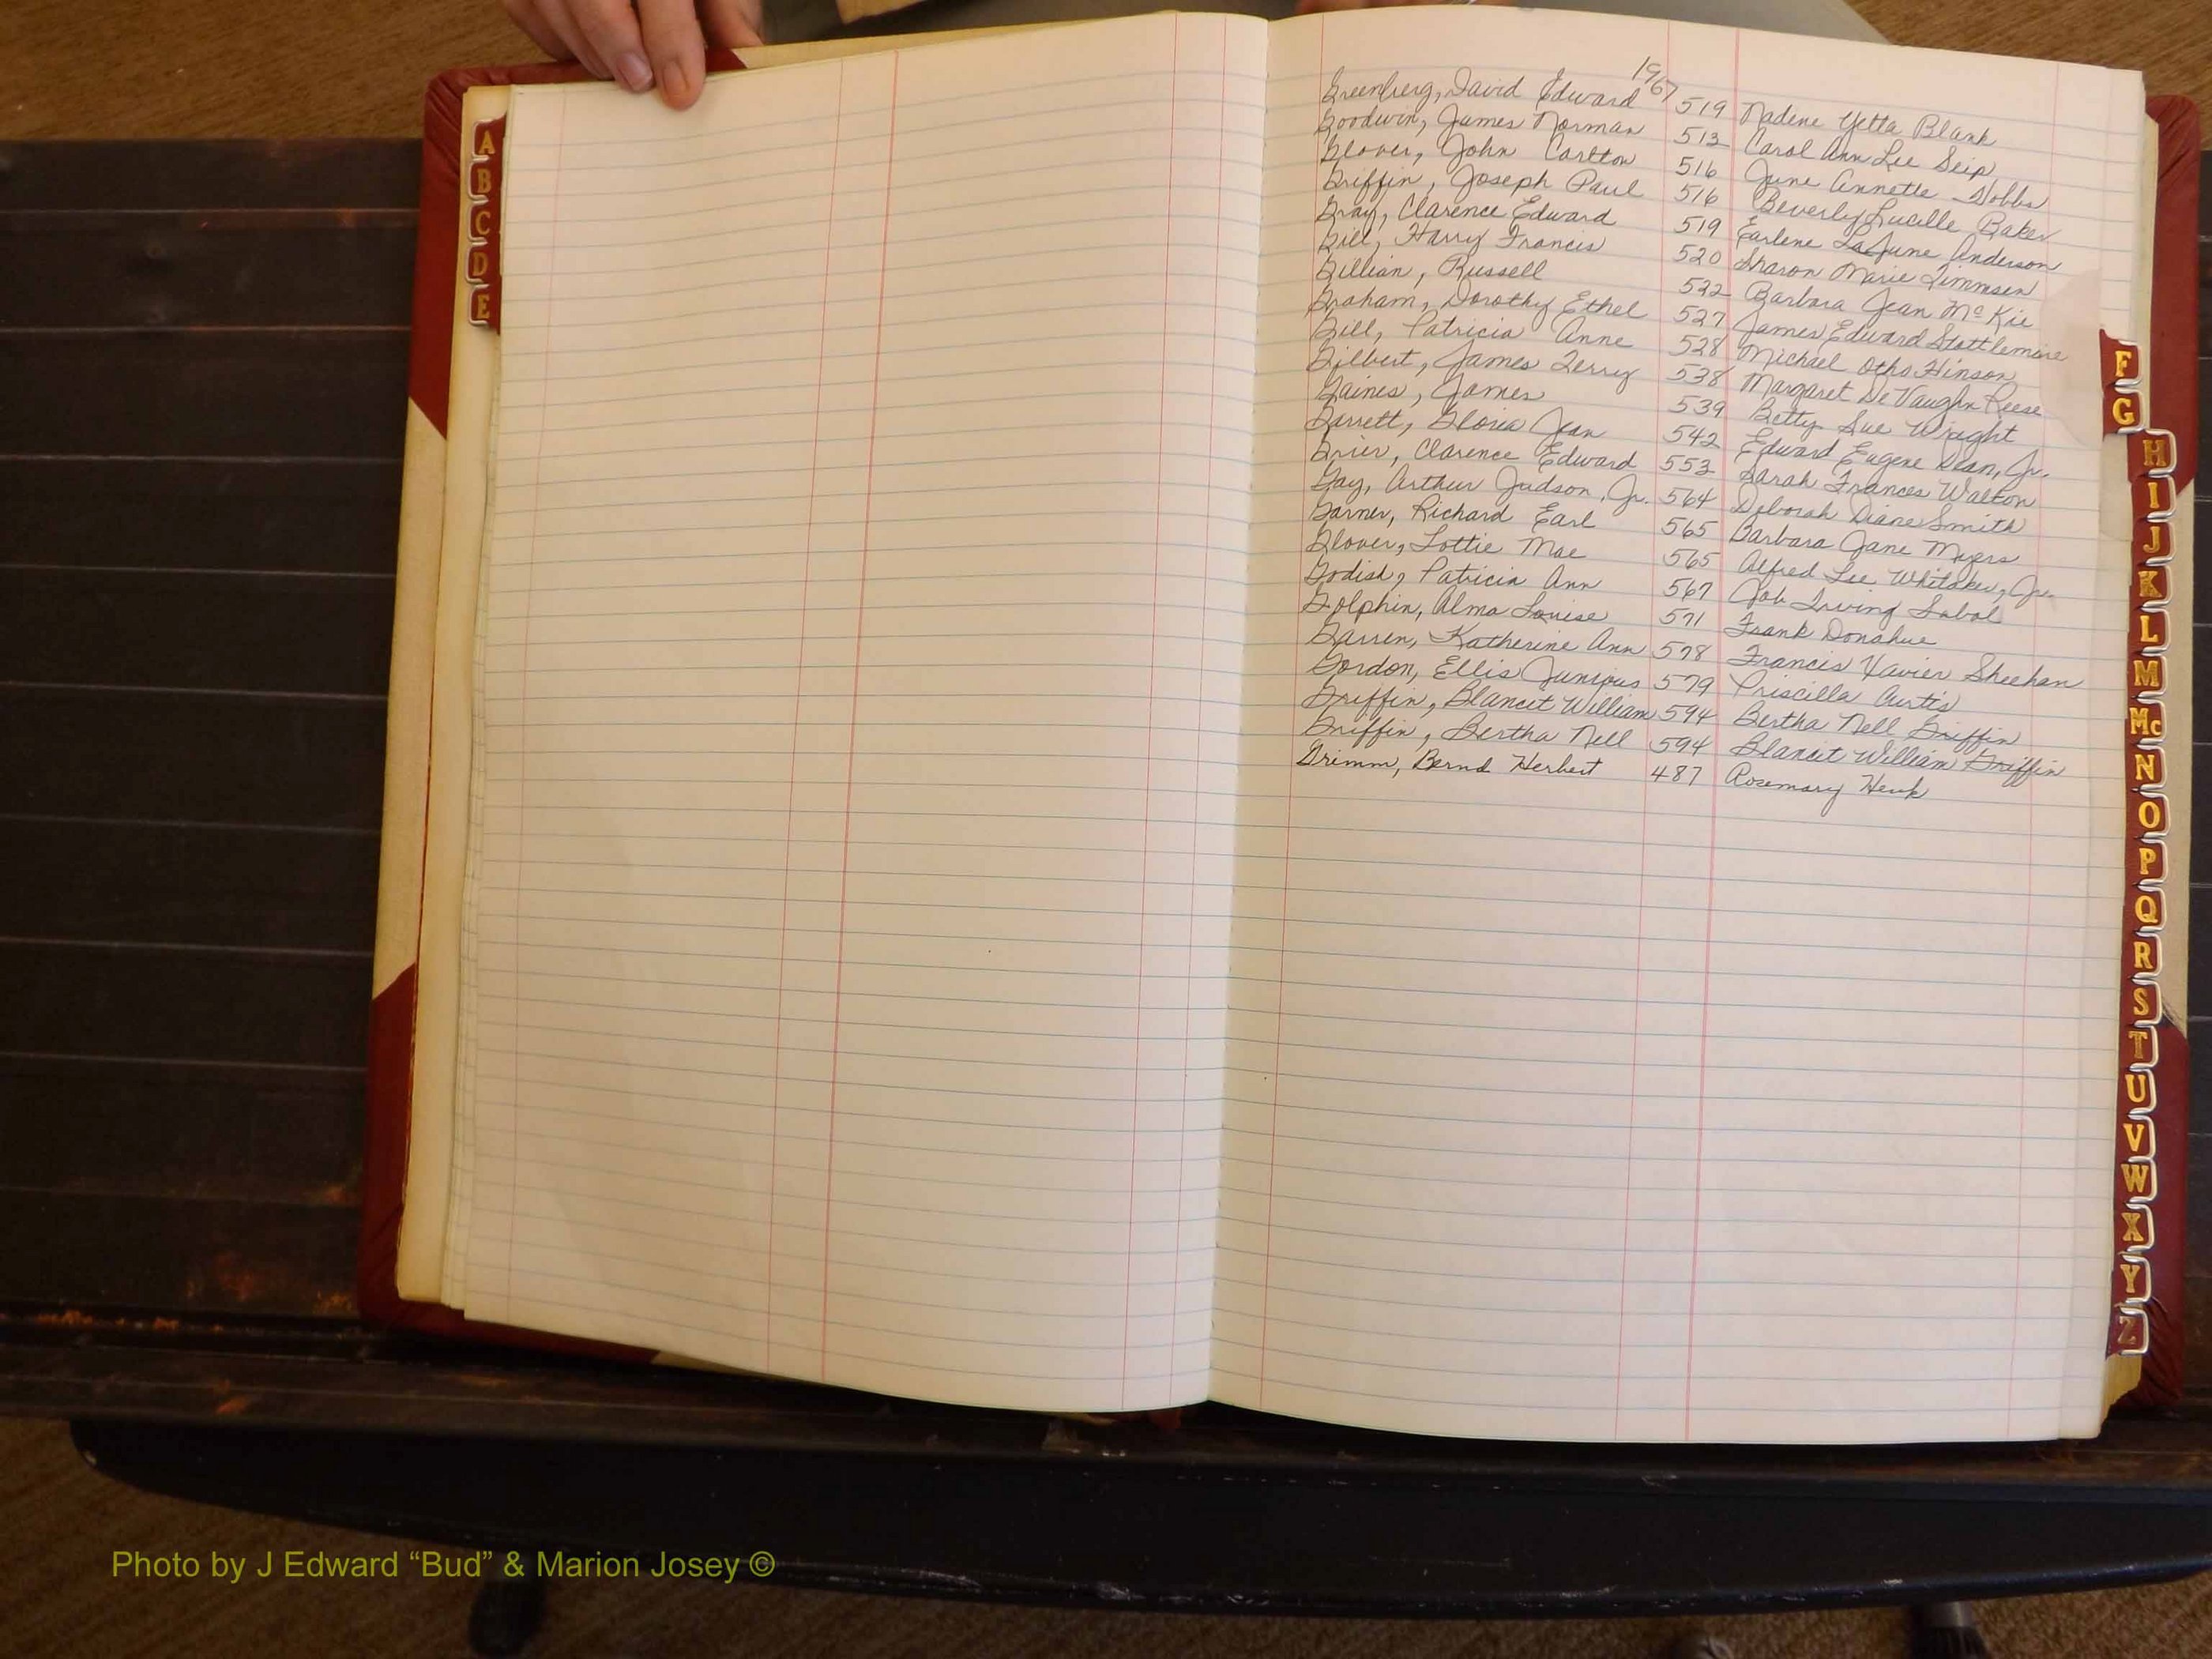 1967
Greenberg, David Edward 519 Nadene Yetta Blank
Goodwin, James Norman 513 Carol Ann Lee Seip
Glover, John Carlton 516 June Annette Dobbs
Griffin, Joseph Paul 516 Beverly Lucille Baker
Gray, Clarence Edward 519 Earlene LaJune Anderson
Gill, Harry Francis 520 Sharon Marie Timmsen
Gillian, Russell 522 Barbara Jean McKie
Graham, Dorothy Ethel 527 James Edward Stottlemire
Gill, Patricia Anne 528 Michael Otho Hinson
Gilbert, James Terry 538 Margaret DeVaughn Reese
Gaines, James 539 Betty Sue Wright
Garrett, Gloria Jean 542 Edward Eugene Dean, Jr.
Grier, Clarence Edward 553 Sarah Frances Walton
Gay, Arthur Judson, Jr. 564 Deborah Diane Smith
Garner, Richard Earl 565 Barbara Jane Myers
Glover, Lottie Mae 565 Alfred Lee Whitaker, Jr.
Godish, Patricia Ann 567 Job Irving Sabol
Golphin, Alma Louise 571 Frank Donahue
Garren, Katherine Ann 578 Francis Xavier Sheehan
Gordon, Ellis Junious 579 Priscilla Curtis
Griffin, Blancit William 594 Bertha Nell Griffin
Griffin, Bertha Nell 594 Blancit William Griffin
Grimm, Bernd Herbert 487 Rosemary Henk
A
B
C
D
E
F
G
H
I
J
K
L
M
Mc
N
O
P
Q
R
S
T
U
V
W
X
Y
Z
Photo by J Edward “Bud” & Marion Josey ©